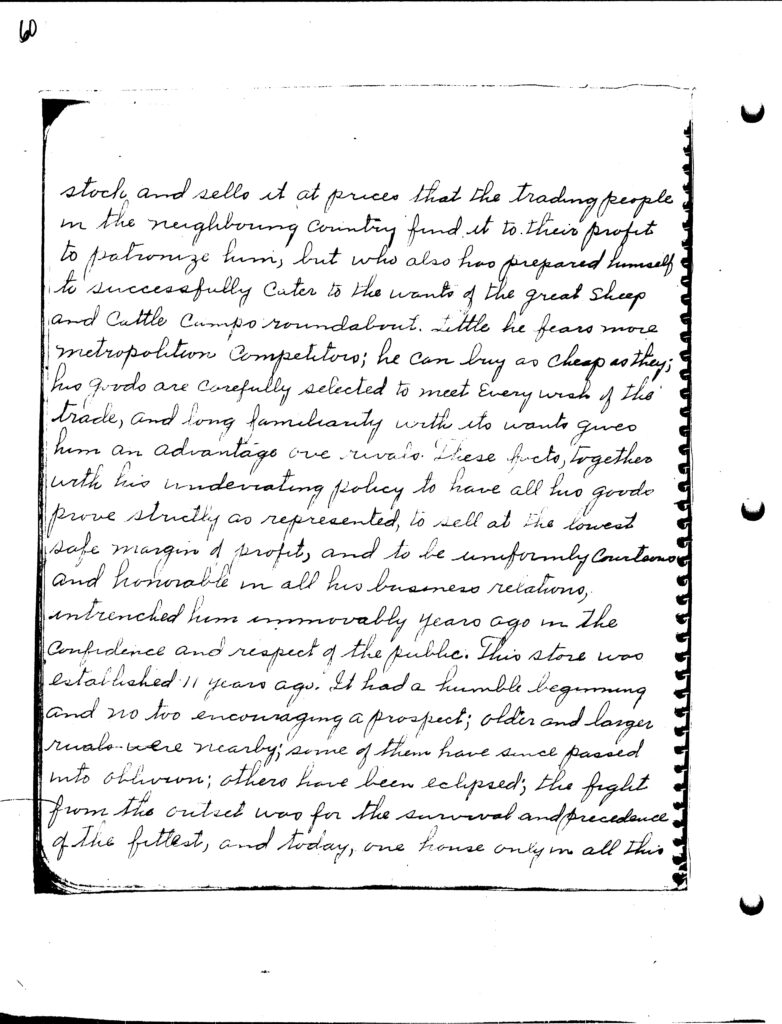 60
stock and sells it at prices that the trading people
in the neighbouring Country find it to their profit
to patronize him, but who also has prepared himself
to successfully Cater to the wants of the great Sheep
and Cattle Camps roundabout. Little he fears more
metropolition Competitors; he can buy as Cheap as they;
his goods are carefully selected to meet Every wish of the
trade, and long familiarity with its wants gives
him an advantage ove rivals. These facts, together
with his undeviating policy to have all his goods
prove strictly as represented, to sell at the lowest
safe margin of profit, and to be uniformly Courteous
and honorable in all his business relations,
intrenched him immovably years ago in the
Confidence and respect of the public. This store was
established 11 years ago. It had a humble beginning
and no too encouraging a prospect; older and larger
rivals were nearby; some of them have since passed
into oblivion; others have been eclipsed; the fight
from the outset was for the survival and precedence
of the fittest, and today, one house only in all this